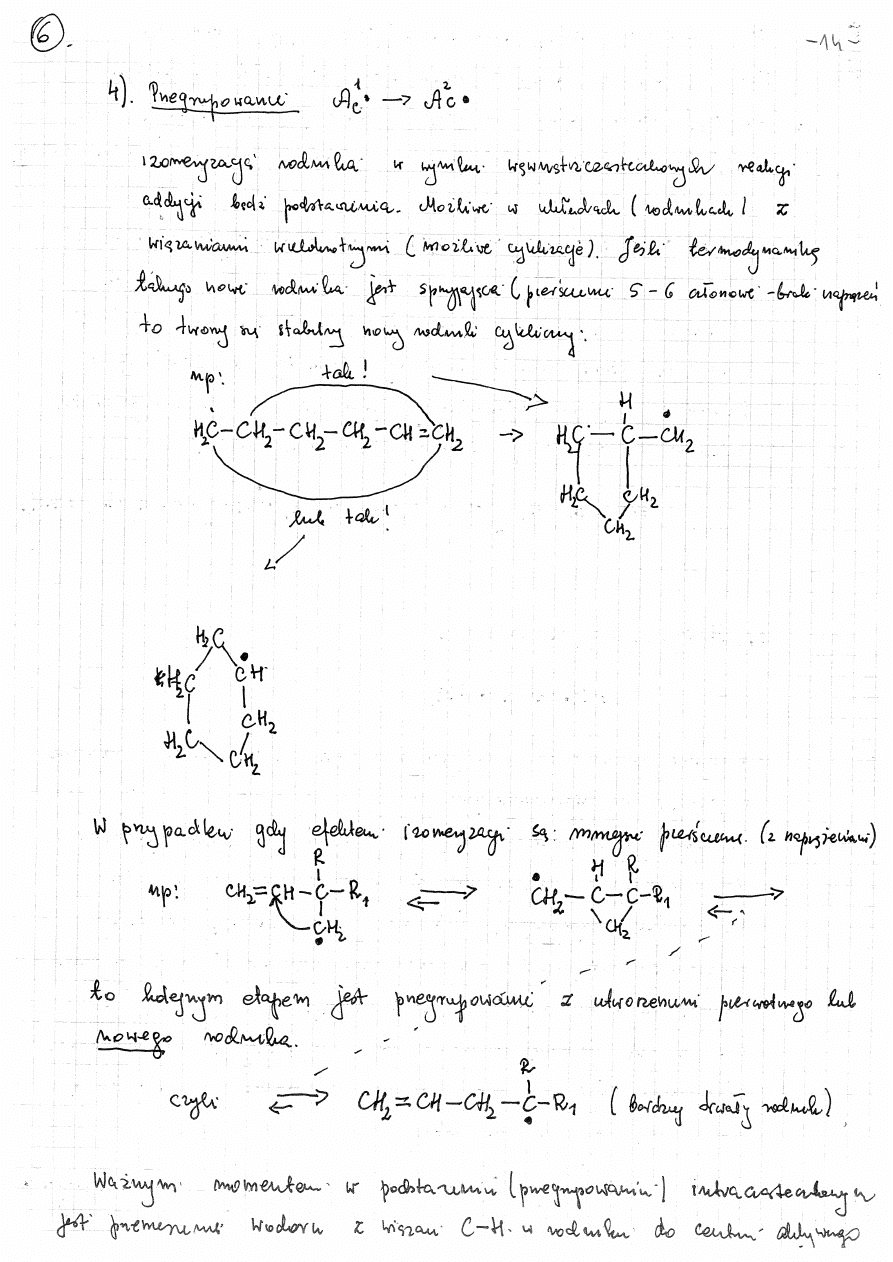 6.
-14-
4). Przegrupowanie Ac¹• → Ac²•
izomeryzacja rodnika w wyniku wewnątrzcząsteczkowych reakcji
addycji bądź podstawienia. Możliwe w układach (rodnikach) z
wiązaniami wielokrotnymi (możliwe cyklizacje). Jeśli termodynamika
takiego nowe rodnika jest sprzyjająca (pierścienie 5-6 członowe - brak naprężeń
to tworzy się stabilny nowy rodnik cykliczny:
np: tak!
H₂C–CH₂–CH₂–CH₂–CH=CH₂ →
H
H₂C–C–CH₂
H₂C CH₂
CH₂
lub tak!
H₂C
CH
H₂C
CH₂
H₂C
CH₂
W przypadku gdy efektem izomeryzacji są mniejsze pierścienie (z naprężeniami)
R H R
np: CH₂=CH–C–R₁ ⇌ CH₂–C–C–R₁ ⇌
CH₂ CH₂
to kolejnym etapem jest przegrupowanie z utworzeniem pierwotnego lub
nowego rodnika.
R
czyli ⇌ CH₂=CH–CH₂–C–R₁ (bardziej trwały rodnik)
Ważnym momentem w podstawieniu (przegrupowaniu) intracząsteczkowym
jest przeniesienie wodoru z wiązań C–H w rodniku do centrum aktywnego